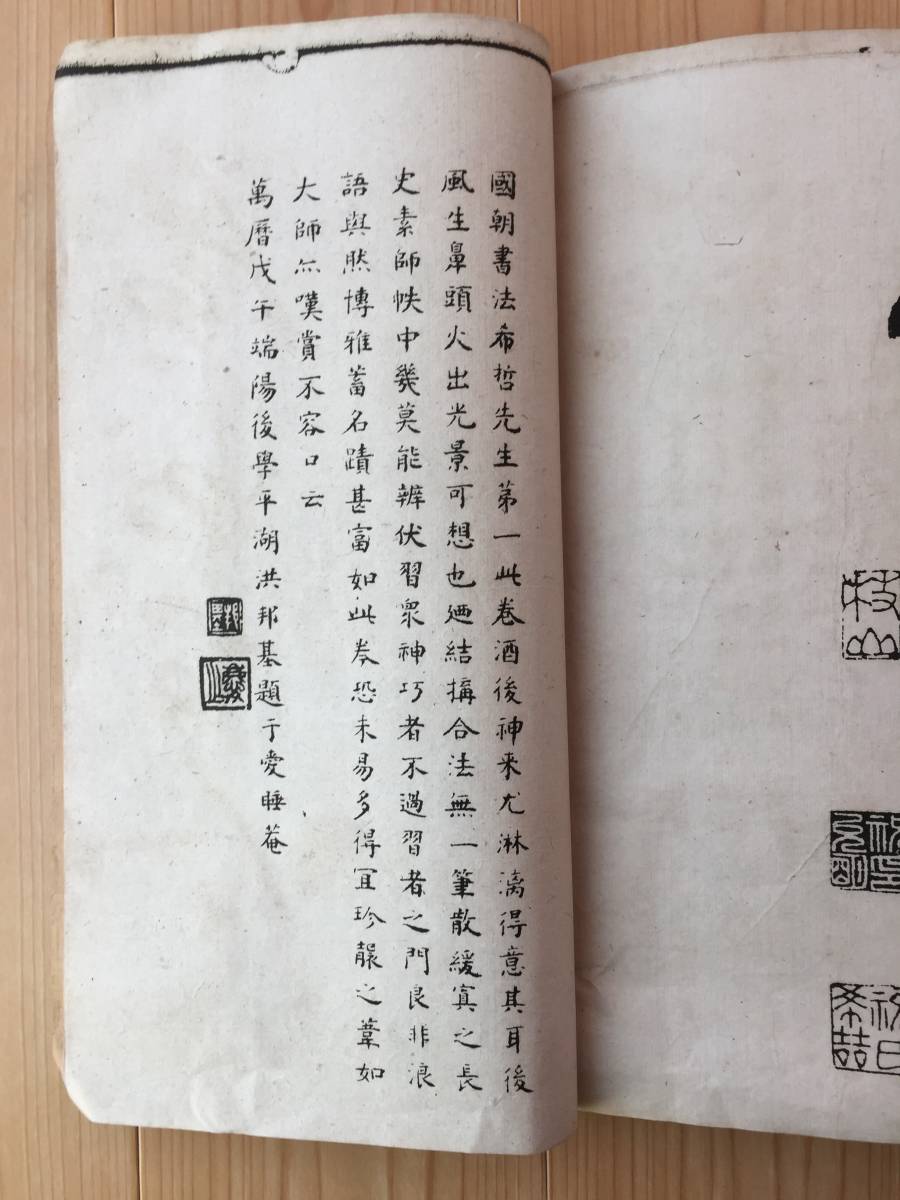 國朝書法希哲先生苐一此卷酒後神来尤淋漓得意其耳後
風生鼻頭火出光景可想也廼結搆合法無一筆散緩寘之長
史素師帙中幾莫能辨伏習衆神巧者不過習者之門良非浪
語與然博雅蓄名蹟甚富如此卷恐未易多得冝珍襲之葦如
大師亦嘆賞不容口云
萬曆戊午端陽後學平湖洪邦基題于愛睡菴
枝山